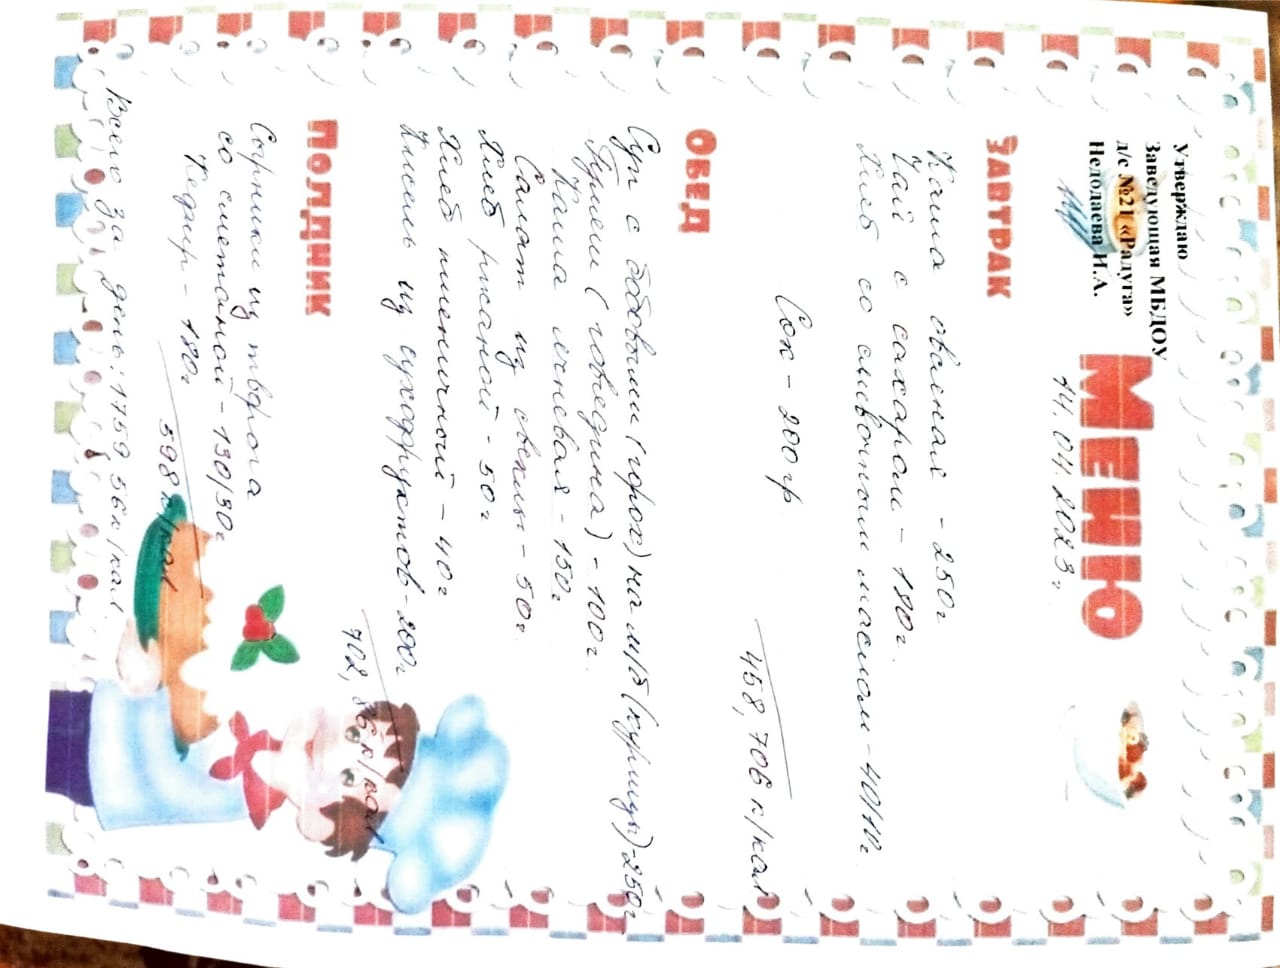 Утверждаю
Заведующая МБДОУ
д/с №21 «Радуга»
Недодаева И.А.
МЕНЮ
14.04.2023 г.
ЗАВТРАК
Каша овсяная - 250г
Чай с сахаром - 180г.
Хлеб со сливочным маслом - 40/10г.
Сок - 200 гр.
458,706 к/кал
ОБЕД
Суп с бобовыми (горох) на м/б (курицы) - 250г
Гуляш (говядина) - 100г.
Каша ячневая - 150г
Салат из свеклы - 50г.
Хлеб ржаной - 50г
Хлеб пшеничный - 40г
Кисель из сухофруктов - 200г
702,86 к/кал
ПОЛДНИК
Сырники из творога
со сметаной - 130/30г
Кефир - 180г
598 к/кал
Всего за день: 1759 56 к/кал